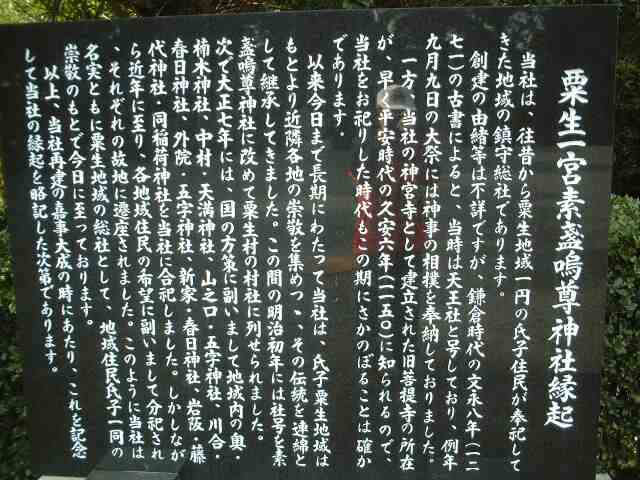 粟生一宮素盞嗚尊神社縁起
当社は、往昔から粟生地域一円の氏子住民が奉祀して
きた地域の鎮守総社であります。
創建の由緒等は不詳ですが、鎌倉時代の文永八年(一二
七一)の古書によると、当時は天王社と号しており、例年
九月九日の大祭には神事の相撲を奉納しておりました。
一方、当社の神宮寺として建立された旧菩提寺の所在
が、早く平安時代の久安六年(一一五〇)に知られるので、
当社をお祀りした時代もこの期にさかのぼることは確か
であります。
以来今日まで長期にわたって当社は、氏子粟生地域は
もとより近隣各地の崇敬を集めつゝ、その伝統を連綿と
して継承してきました。この間の明治初年には社号を素
盞嗚尊神社に改めて粟生村の村社に列せられました。
次で大正七年には、国の方策に副いまして地域内の奥・
柿木神社、中村・天満神社、山之口・五字神社、川合・
春日神社、外院・五字神社、新家・春日神社、岩阪・藤
代神社・同稲荷神社を当社に合祀しました。しかしなが
ら近年に至り、各地域住民の希望に副いまして分祀され
、それぞれの故地に遷座されました。このように当社は
名実ともに粟生地域の総社として、地域住民氏子一同の
崇敬のもとで今日に至っております。
以上、当社再建の嘉事大成の時にあたり、これを記念
して当社の縁起を略記した次第であります。